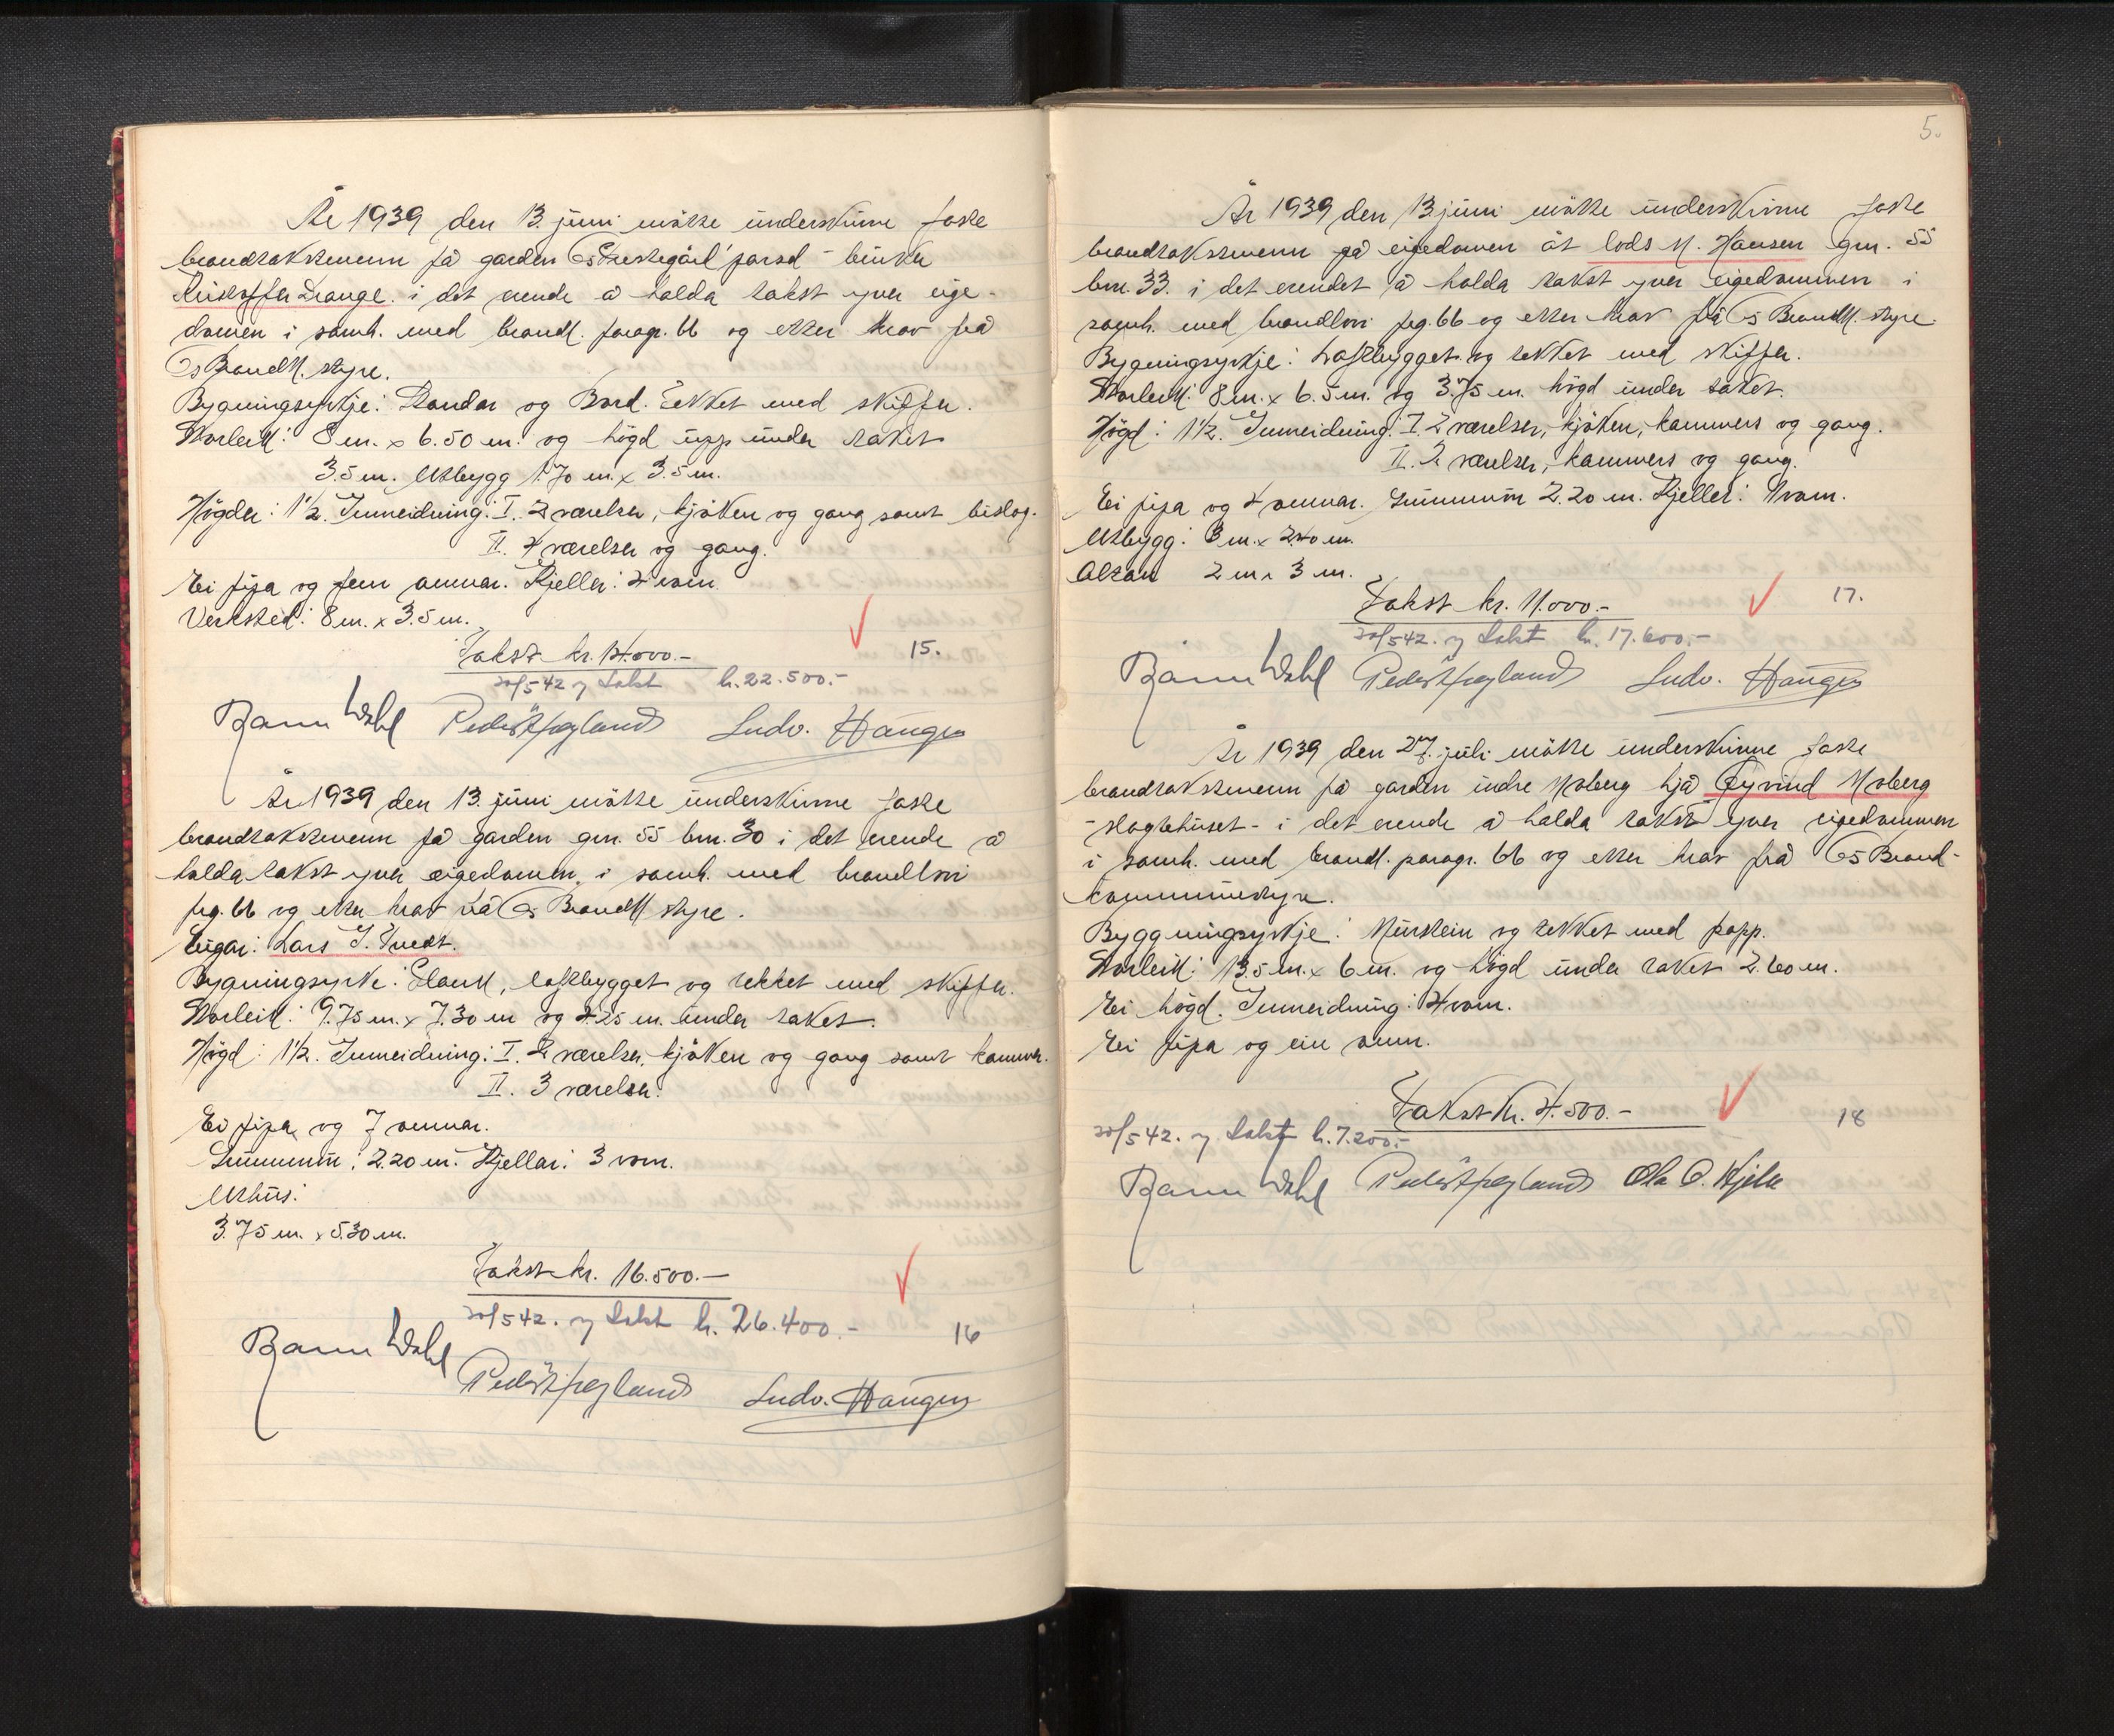 År 1939 den 13. juni møtte underskrivne faste
brandtakstmenn på garden Os Prestegård parsel - bruker
Kristoffer Drange. i det erende å halda takst yver eige-
domen i samh. med brandl. paragr. 66 og etter krav frå
Os Brandk. styre.
Bygningsyrkje: Standar og Bord. Tekket med skiffer.
Storleik: 8 m. x 6.50 m. og högd upp under taket
3.5 m. Utbygg 1.70 m. x 3.5 m.
Högder: 1½. Innreidning: I. 2 værelser, kjöken og gang samt bislag.
II. 4 værelser og gang.
Ei pipa og fem omnar. Kjeller: 2 rom.
Verksted: 8 m. x 3.5 m.
Takst kr. 14.000.-
15.
20/5 42 ny takst kr. 22.500.-
Ludv. Haugen
År 1939 den 13. juni møtte underskrivne faste
brandtakstmenn på garden gnr. 55 bnr. 30 i det erende å
halda takst yver eigedomen, i samh. med brandlovi
prg. 66 og etter krav frå Os Brandk. styre.
Eigar: Lars J. Tveit.
Bygningsyrke: Plank, loftbygget og tekket med skiffer.
Storleik: 9.75 m. x 7.30 m og 4.25 m. under taket.
Högd: 1½. Innreidning: I. 2 værelser, kjöken og gang samt kammer.
II. 3 værelser.
Ei pipa og 7 omnar.
Grunnmur: 2.20 m. Kjellar: 3 rom.
Uthus:
3.75 m. x 5.30 m.
Takst kr. 16.500.-
20/5 42. ny takst kr. 26.400.-
16
Ludv. Haugen
5.
År 1939 den 13 juni møtte underskrivne faste
brandtakstmenn på eigedomen åt lods M. Hansen gnr. 55
bnr. 33. i det erendet å halda takst yver eigedommen i
samh. med brandlovi prg. 66 og etter krav frå Os Brandk. styre.
Bygningsyrkje: Loftbygget og tekket med skiffer.
Storleik: 8 m. x 6.5 m. og 3.75 m. högd under taket.
Högd: 1½. Innreidning: I. 2 værelser, kjöken, kammers og gang.
II. 2 værelser, kammers og gang.
Ei pipa og 4 omnar. Grunnmur 2.20 m. Kjeller: 1 rom.
Utbygg: 3 m. x 2.40 m.
Altan 2 m x 3 m.
Takst kr. 11.000.-
17.
20/5 42. ny takst kr. 17.600.-
Ludv. Haugen
År 1939 den 27. juli møtte underskrivne faste
brandtakstmenn på garden indre Moberg hjå Øyvind Moberg
- slagtehuset - i det erende å halda takst yver eigedommen
i samh. med brandl. paragr. 66 og etter krav frå Os Brand-
kommunestyre.
Byggningsyrkje: Murstein og tekket med papp.
Storleik: 13.5 m. x 6 m. og högd under taket 2.60 m.
Ei högd. Innreidning: 4 rom.
Ei pipa og ein omn.
Takst kr. 4.500.-
18
20/5 42. ny takst kr. 7.200.-
Ola O. Hjelle